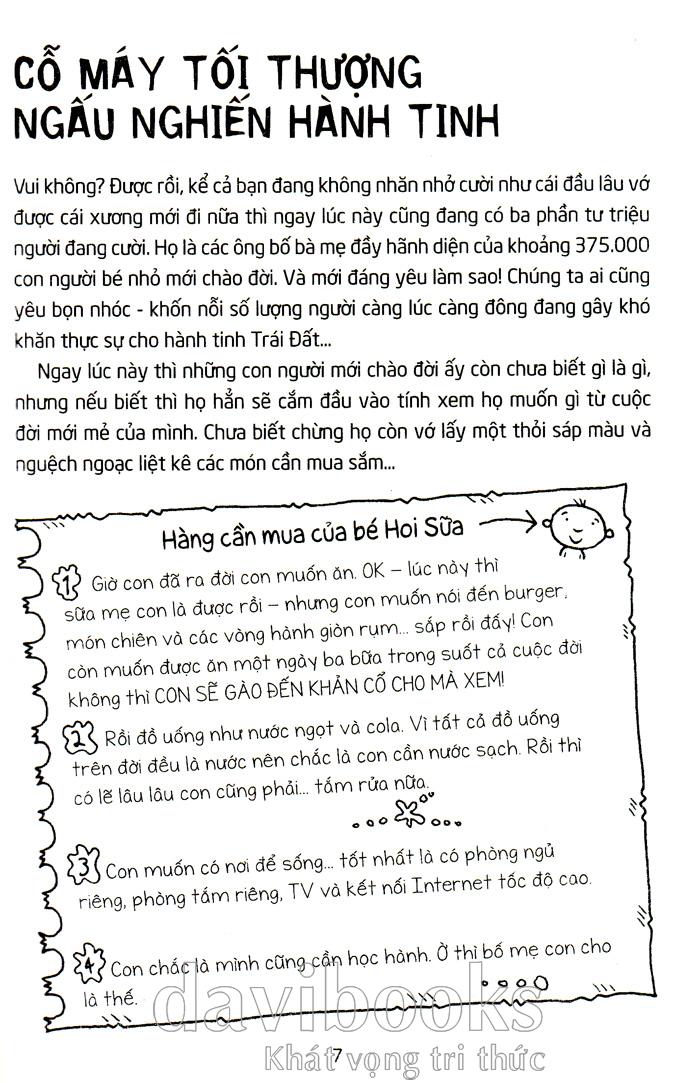 CỖ MÁY TỐI THƯỢNG
NGẤU NGHIẾN HÀNH TINH
Vui không? Được rồi, kể cả bạn đang không nhăn nhở cười như cái đầu lâu vớ
được cái xương mới đi nữa thì ngay lúc này cũng đang có ba phần tư triệu
người đang cười. Họ là các ông bố bà mẹ đầy hãnh diện của khoảng 375.000
con người bé nhỏ mới chào đời. Và mới đáng yêu làm sao! Chúng ta ai cũng
yêu bọn nhóc - khốn nỗi số lượng người càng lúc càng đông đang gây khó
khăn thực sự cho hành tinh Trái Đất...
Ngay lúc này thì những con người mới chào đời ấy còn chưa biết gì là gì,
nhưng nếu biết thì họ hẳn sẽ cắm đầu vào tính xem họ muốn gì từ cuộc
đời mới mẻ của mình. Chưa biết chừng họ còn vớ lấy một thỏi sáp màu và
nguệch ngoạc liệt kê các món cần mua sắm...
Hàng cần mua của bé Hoi Sữa
1 Giờ con đã ra đời con muốn ăn. OK – lúc này thì
sữa mẹ con là được rồi – nhưng con muốn nói đến burger,
món chiên và các vòng hành giòn rụm... sắp rồi đấy! Con
còn muốn được ăn một ngày ba bữa trong suốt cả cuộc đời
không thì CON SẼ GÀO ĐẾN KHẢN CỔ CHO MÀ XEM!
2 Rồi đồ uống như nước ngọt và cola. Vì tất cả đồ uống
trên đời đều là nước nên chắc là con cần nước sạch. Rồi thì
có lẽ lâu lâu con cũng phải... tắm rửa nữa.
3 Con muốn có nơi để sống... tốt nhất là có phòng ngủ
riêng, phòng tắm riêng, TV và kết nối Internet tốc độ cao.
4 Con chắc là mình cũng cần học hành. Ở thì bố mẹ con cho
là thế.
davibooks
Khát vọng tri thức
7